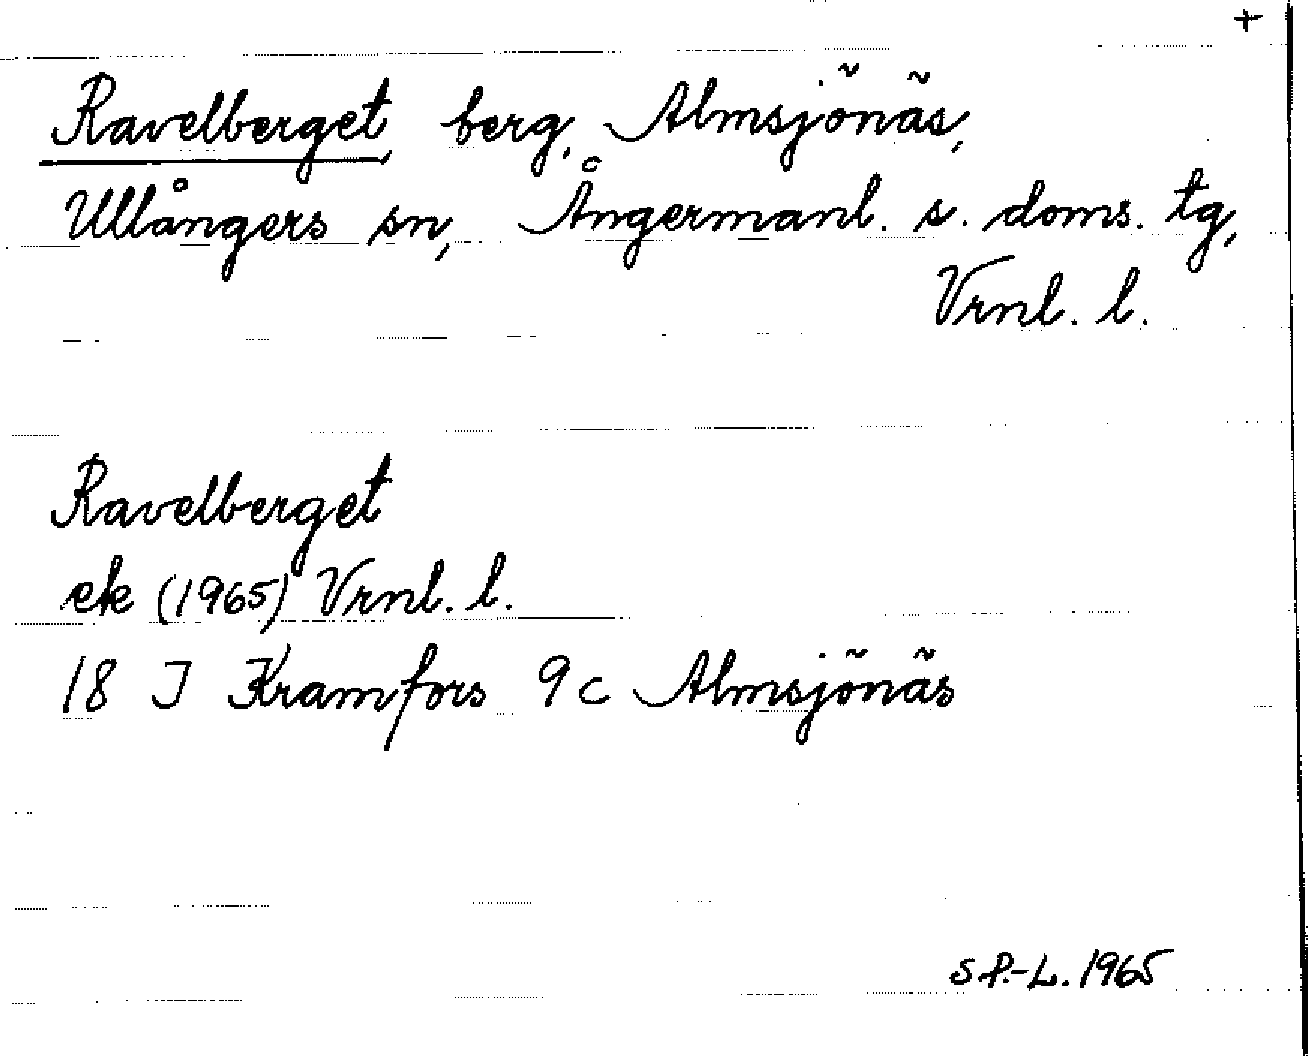 +
Ravelberget, berg, Almsjönäs,
Ullångers sn, Ångermanl. s. doms. tg,
Vrnl. l.
Ravelberget
ek (1965) Vrnl. l.
18 J Kramfors 9c Almsjönäs
S.P.-L. 1965